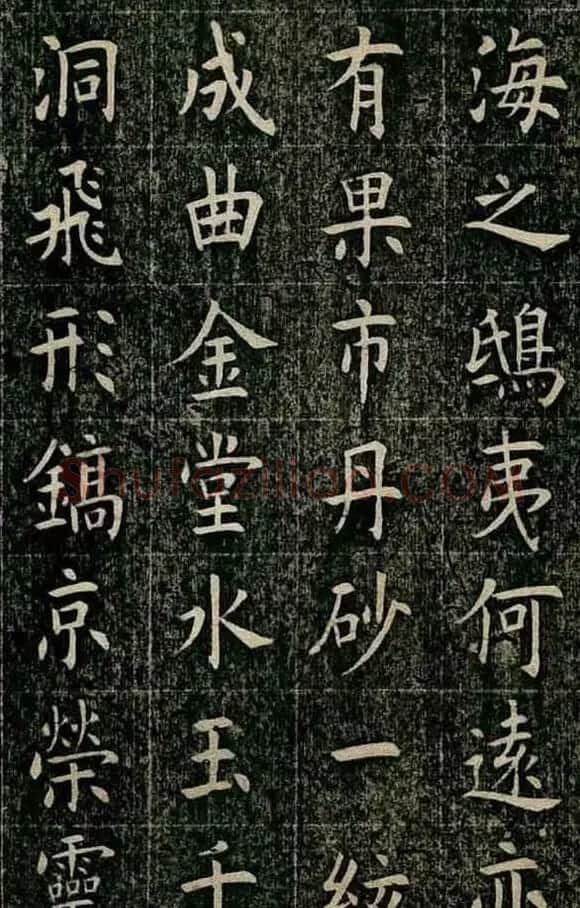 海之鴟夷何遠亦
有果市丹砂一絃
成曲金堂水玉千
洞飛形鎬京榮靈
Shufaziliao.COM